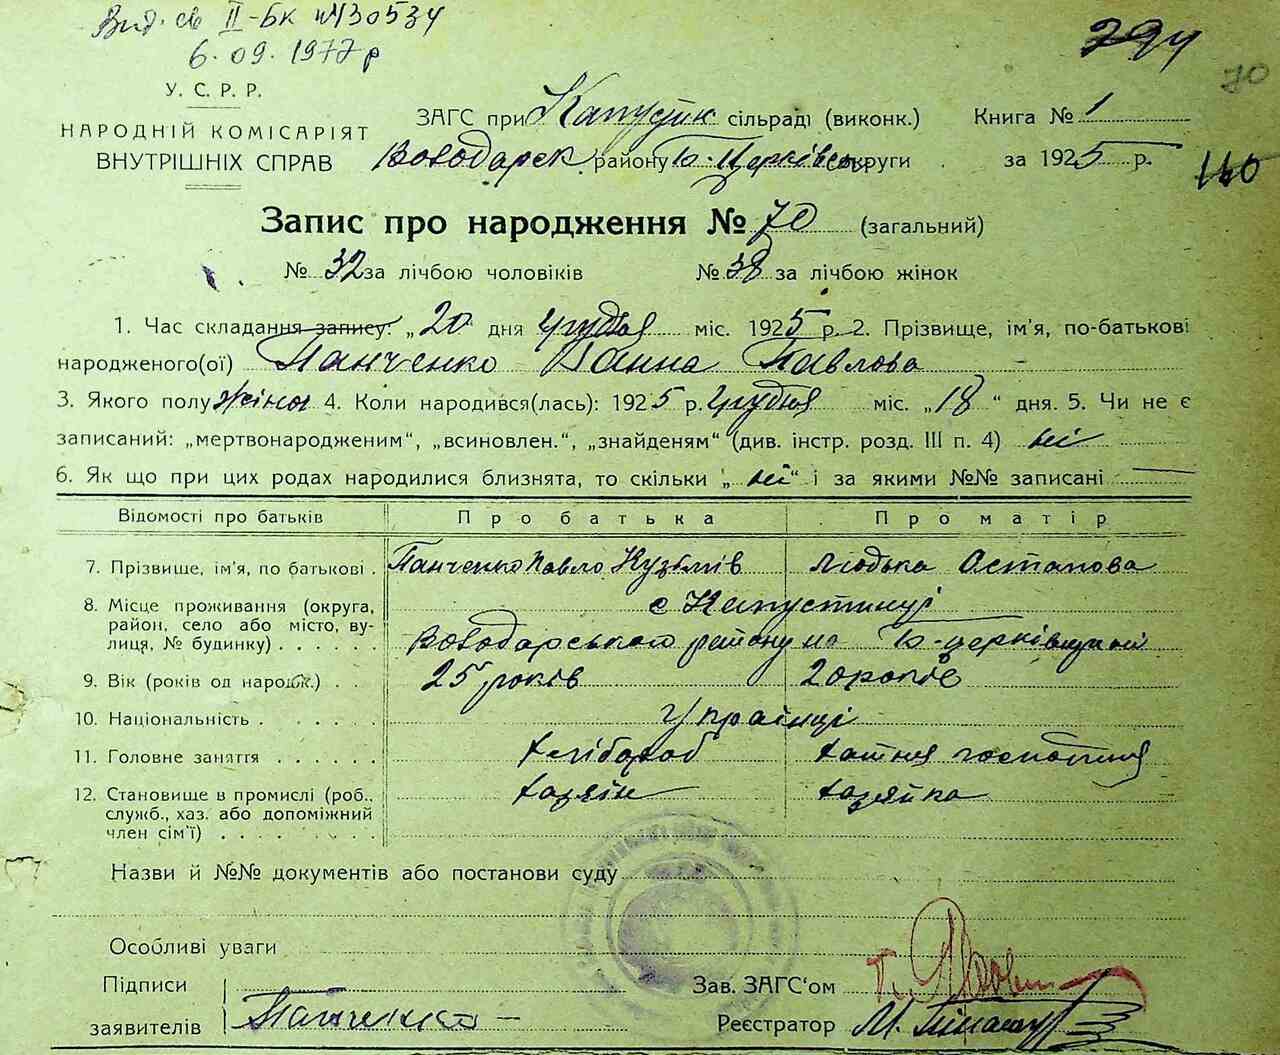 Вид. св II-БК №430534
6.09.1977 р
294
70
У. С. Р. Р.
НАРОДНІЙ КОМІСАРІЯТ
ВНУТРІШНІХ СПРАВ
ЗАГС при Капустк сільраді (виконк.) Книга № 1
Володарск району Б-Церківськ округи за 1925 р.
140
Запис про народження № 70 (загальний)
№ 32 за лічбою чоловіків № 38 за лічбою жінок
1. Час складання запису: „20 дня грудня міс. 1925 р. 2. Прізвище, ім'я, по-батькові
народженого(ої) Панченко Ганна Павлова
3. Якого полу жіноч 4. Коли народився(лась): 1925 р. грудня міс. „18“ дня. 5. Чи не є
записаний: „мертвонародженим“, „всиновлен.“, „знайденям“ (див. інстр. розд. III п. 4) ні
6. Як що при цих родах народилися близнята, то скільки „ні“ і за якими №№ записані
Відомості про батьків Про батька Про матір
7. Прізвище, ім'я, по батькові. Панченко Павло Кузьмів Людька Остапова
8. Місце проживання (округа, с Капустинці
район, село або місто, ву-
лиця, № будинку) Володарського району на Б-церківщині
9. Вік (років од народж.) 25 років 20 років
10. Національність Українці
11. Головне заняття хлібороб хатня господиня
12. Становище в промислі (роб., хазяін хазяйка
служб., хаз. або допоміжний
член сім'ї)
Назви й №№ документів або постанови суду
Особливі уваги
Підписи Зав. ЗАГС'ом
заявителів Панченко Реєстратор М.